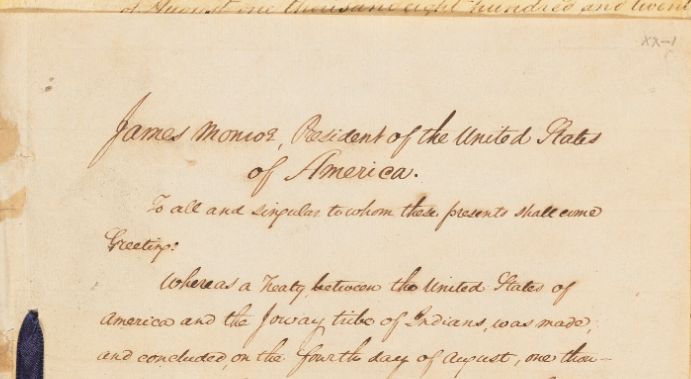 of August one thousand eight hundred and twent
XX-1
James Monroe, President of the United States
of America.
To all and singular to whom these presents shall come
Greeting:
Whereas a Treaty between the United States of
America and the Ioway tribe of Indians, was made,
and concluded, on the fourth day of August, one thou-